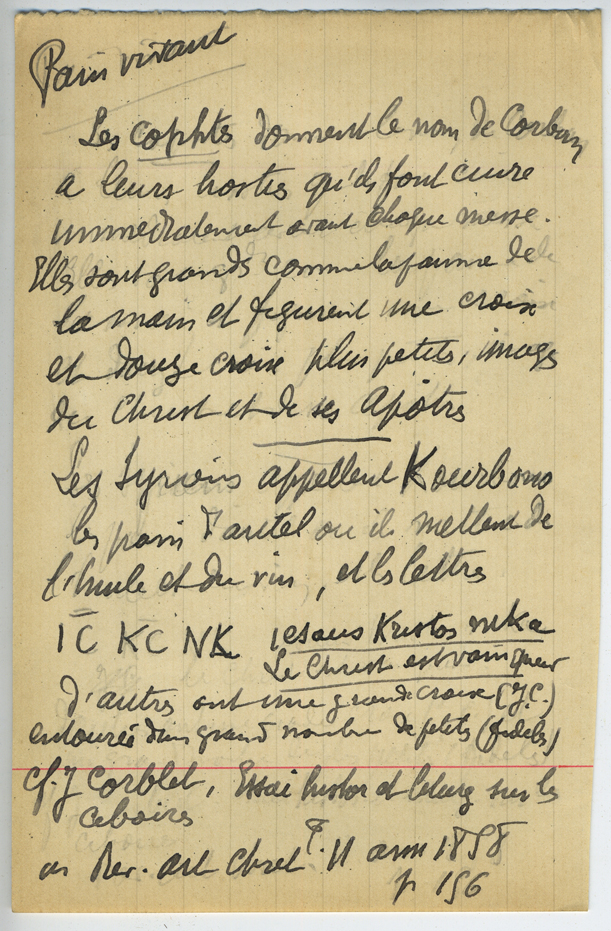 Pain vivant
Les cophtes donnent le nom de Corban
a leurs hosties qu'ils font cuire
immédiatement avant chaque messe.
Elles sont grandes comme la paume de
la main et figurent une croix
et douze croix plus petites, images
du Christ et de ses Apôtres
Les Syriens appellent Kourbono
les pains d'autel ou ils mettent de
l'huile et du vin, et les lettres
IC KC NK Iesous Kristos nika
Le Christ est vainqueur
d'autres ont une grande croix (J.C.)
entourée d'un grand nombre de petites (fidèles)
cf. J Corblet, Essai histor et liturg sur les
ciboires
Rev. art Chret. T. II 1858
p 156